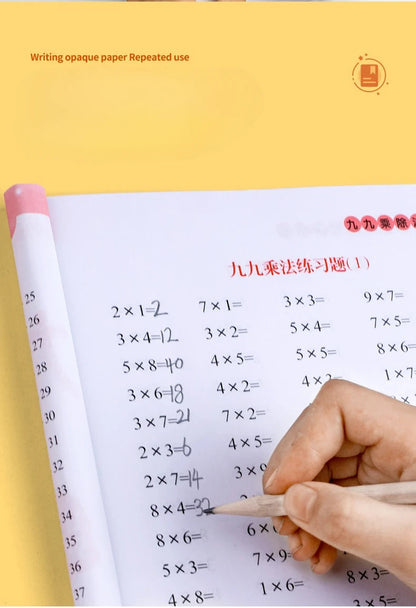 Writing opaque paper Repeated use
九九乘除
九九乘法练习题(1)
25
26
27
28
29
30
31
32
33
34
35
36
37
2×1=2 7×1= 3×3= 9×7=
3×4=12 3×2= 5×4= 7×5=
5×8=40 4×5= 5×5= 8×6=
3×6=18 4×2= 4×2= 1×7
3×7=21 7×2=
2×3=6 4×5=
2×7=14 3×
8×4=32
8×6= 6×
5×3= 7×9= 8×3=
4×8= 1×6= 3×5=